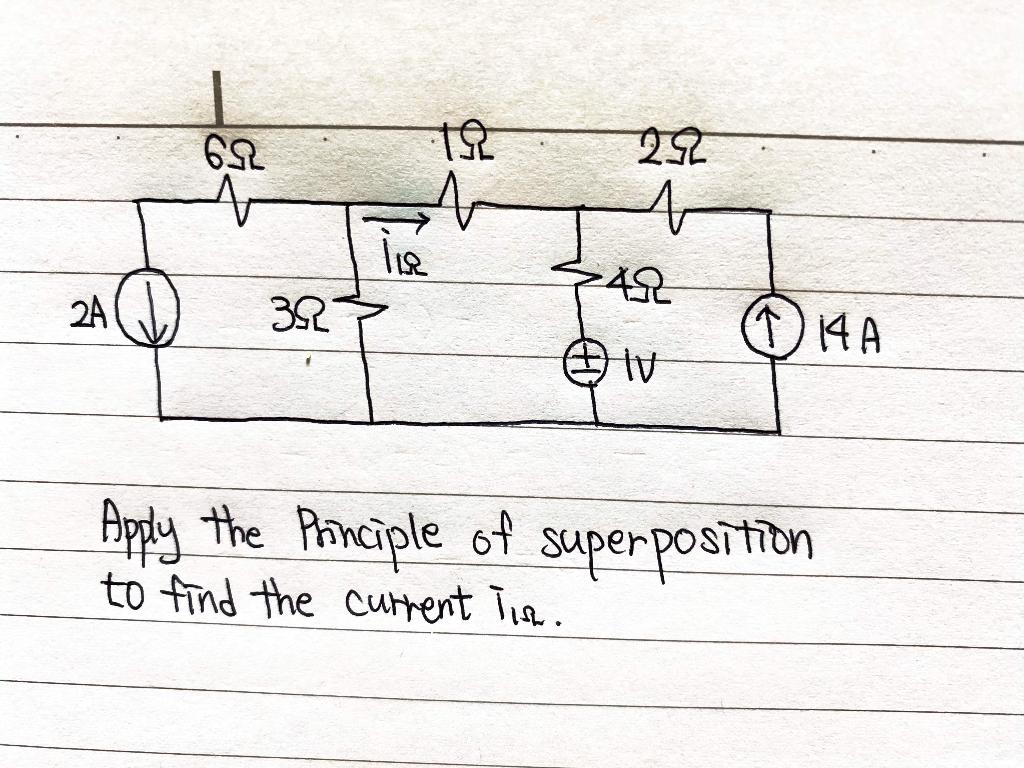 6Ω 1Ω 2Ω
i1Ω
2A 3Ω 4Ω 14A
1V
Apply the Principle of superposition
to find the current i1Ω.